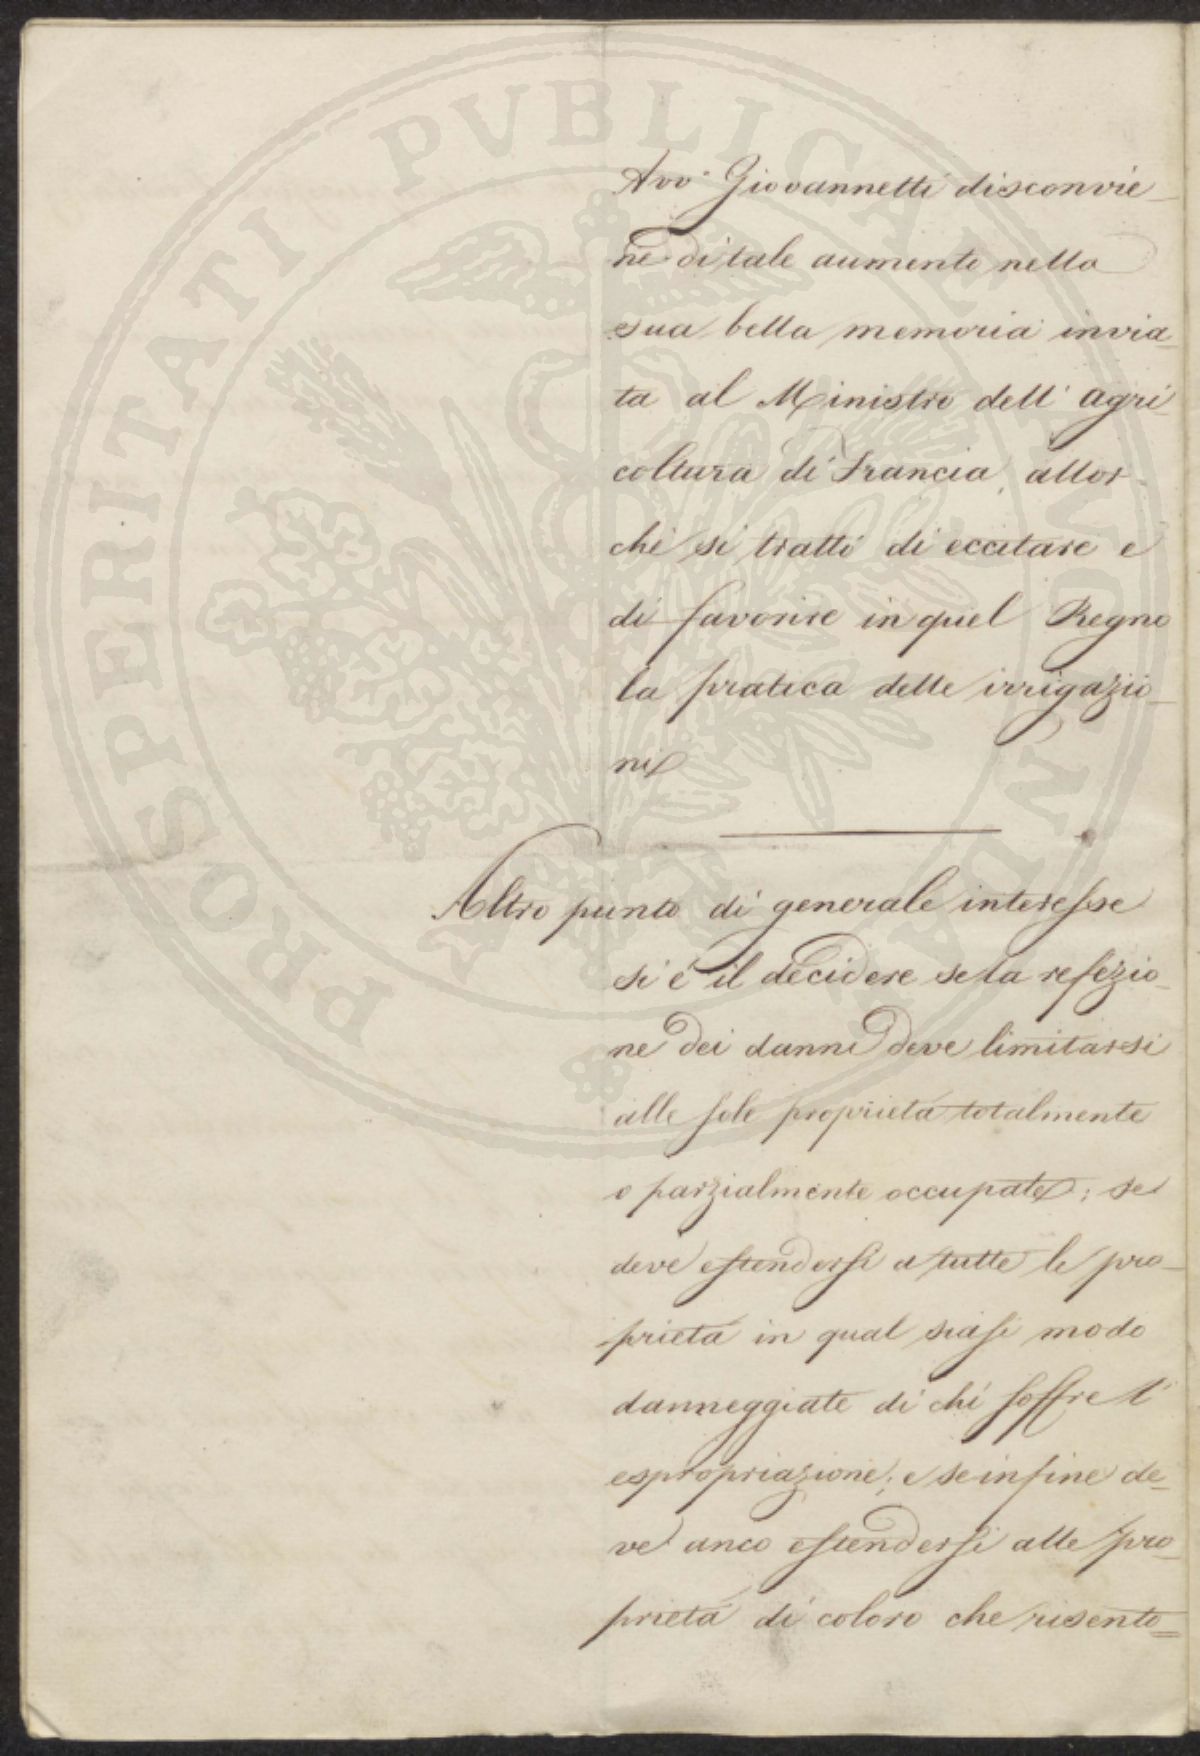 PROSPERITATI PUBLICAE AUGENDAE
Avv.º Giovannetti disconvie-
ne di tale aumento nella
sua bella memoria invia-
ta al Ministro dell' agri-
coltura di Francia, allor-
chè si tratti di eccitare e
di favorire in quel Regno
la pratica delle irrigazio-
ni
Altro punto di generale interesse
si è il decidere se la refezio-
ne dei danni deve limitarsi
alle sole proprietà totalmente
o parzialmente occupate; se
deve estendersi a tutte le pro-
prietà in qual siasi modo
danneggiate di chi soffre l'
espropriazione; e se infine de-
ve anco estendersi alle pro-
prietà di coloro che risento=